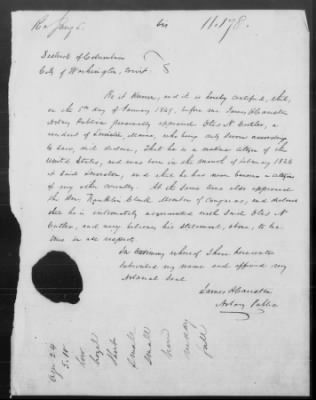 11.178.
District of Columbia
City of Washington, to wit
Be it Known, and it is hereby certified, that,
on the 5th day of January 1849, before me James H Causten
Notary Public personally appeared Otis N Cutler, a
resident of Maine, who being duly sworn according
to Law, did declare, that he is a native citizen of the
United States, and was born in the month of February 1824
at said and that he has never become a citizen
of any other country. At the same time also appeared
the Hon. Franklin Clark Member of Congress, and declared
that he is intimately acquainted with Said Otis N
Cutler, and verily believes his statement, above, to be
true in all respects.
In testimony whereof I have hereunto
subscribed my name and affixed my
Notarial Seal
James H Causten
Notary Public
Age 24
5.10
low
hazel
small
small
ruddy
full